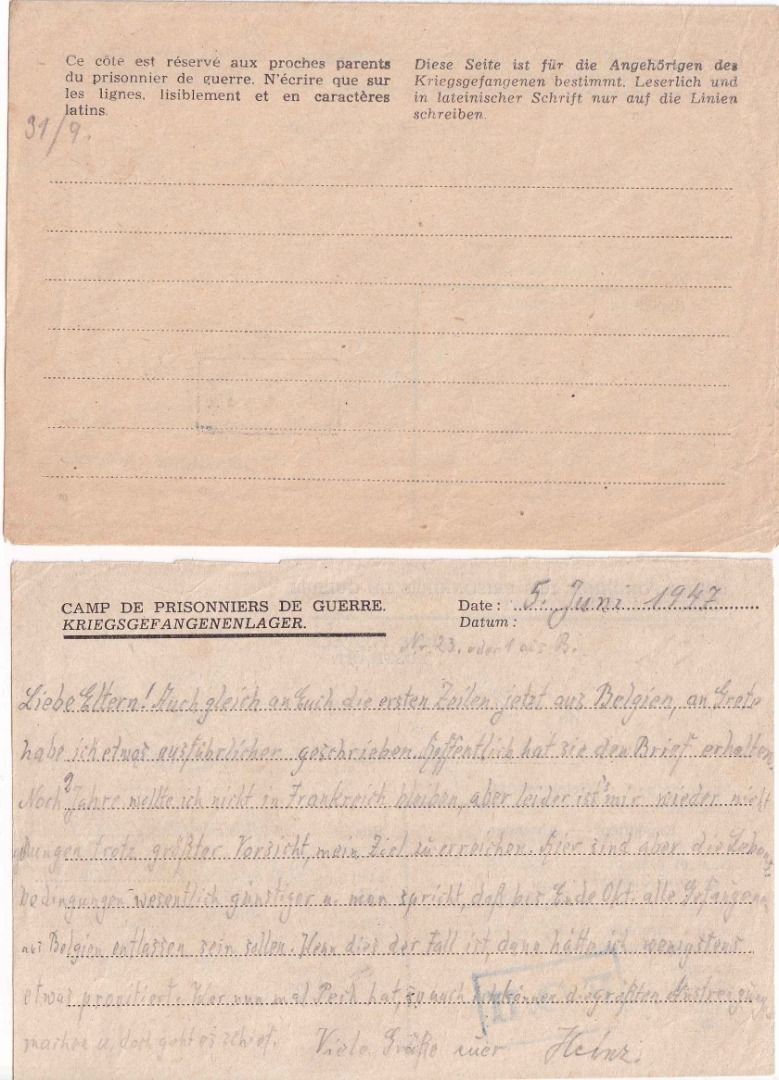 Ce côté est réservé aux proches parents
du prisonnier de guerre. N'écrire que sur
les lignes, lisiblement et en caractères
latins.
Diese Seite ist für die Angehörigen des
Kriegsgefangenen bestimmt. Leserlich und
in lateinischer Schrift nur auf die Linien
schreiben.
31/9.
CAMP DE PRISONNIERS DE GUERRE.
KRIEGSGEFANGENENLAGER.
Date: 5. Juni 1947
Datum:
Nr. 23. oder 1 aus B.
Liebe Eltern! Auch gleich an Euch die ersten Zeilen jetzt aus Belgien, an Grete
habe ich etwas ausführlicher geschrieben. Hoffentlich hat sie den Brief erhalten.
Noch 2 Jahre wollte ich nicht in Frankreich bleiben, aber leider ist's mir wieder nicht
gelungen trotz größter Vorsicht, mein Ziel zu erreichen. Hier sind aber die Lebens
bedingungen wesentlich günstiger u. man spricht, daß bis Ende Okt. alle Gefangenen
aus Belgien entlassen sein sollen. Wenn dies der Fall ist, dann hätte ich wenigstens
etwas profitiert. Wer nun mal Pech hat, so auch ich, können die größten Anstrengungen
machen u. doch geht es schief. Viele Grüße euer Heinz.